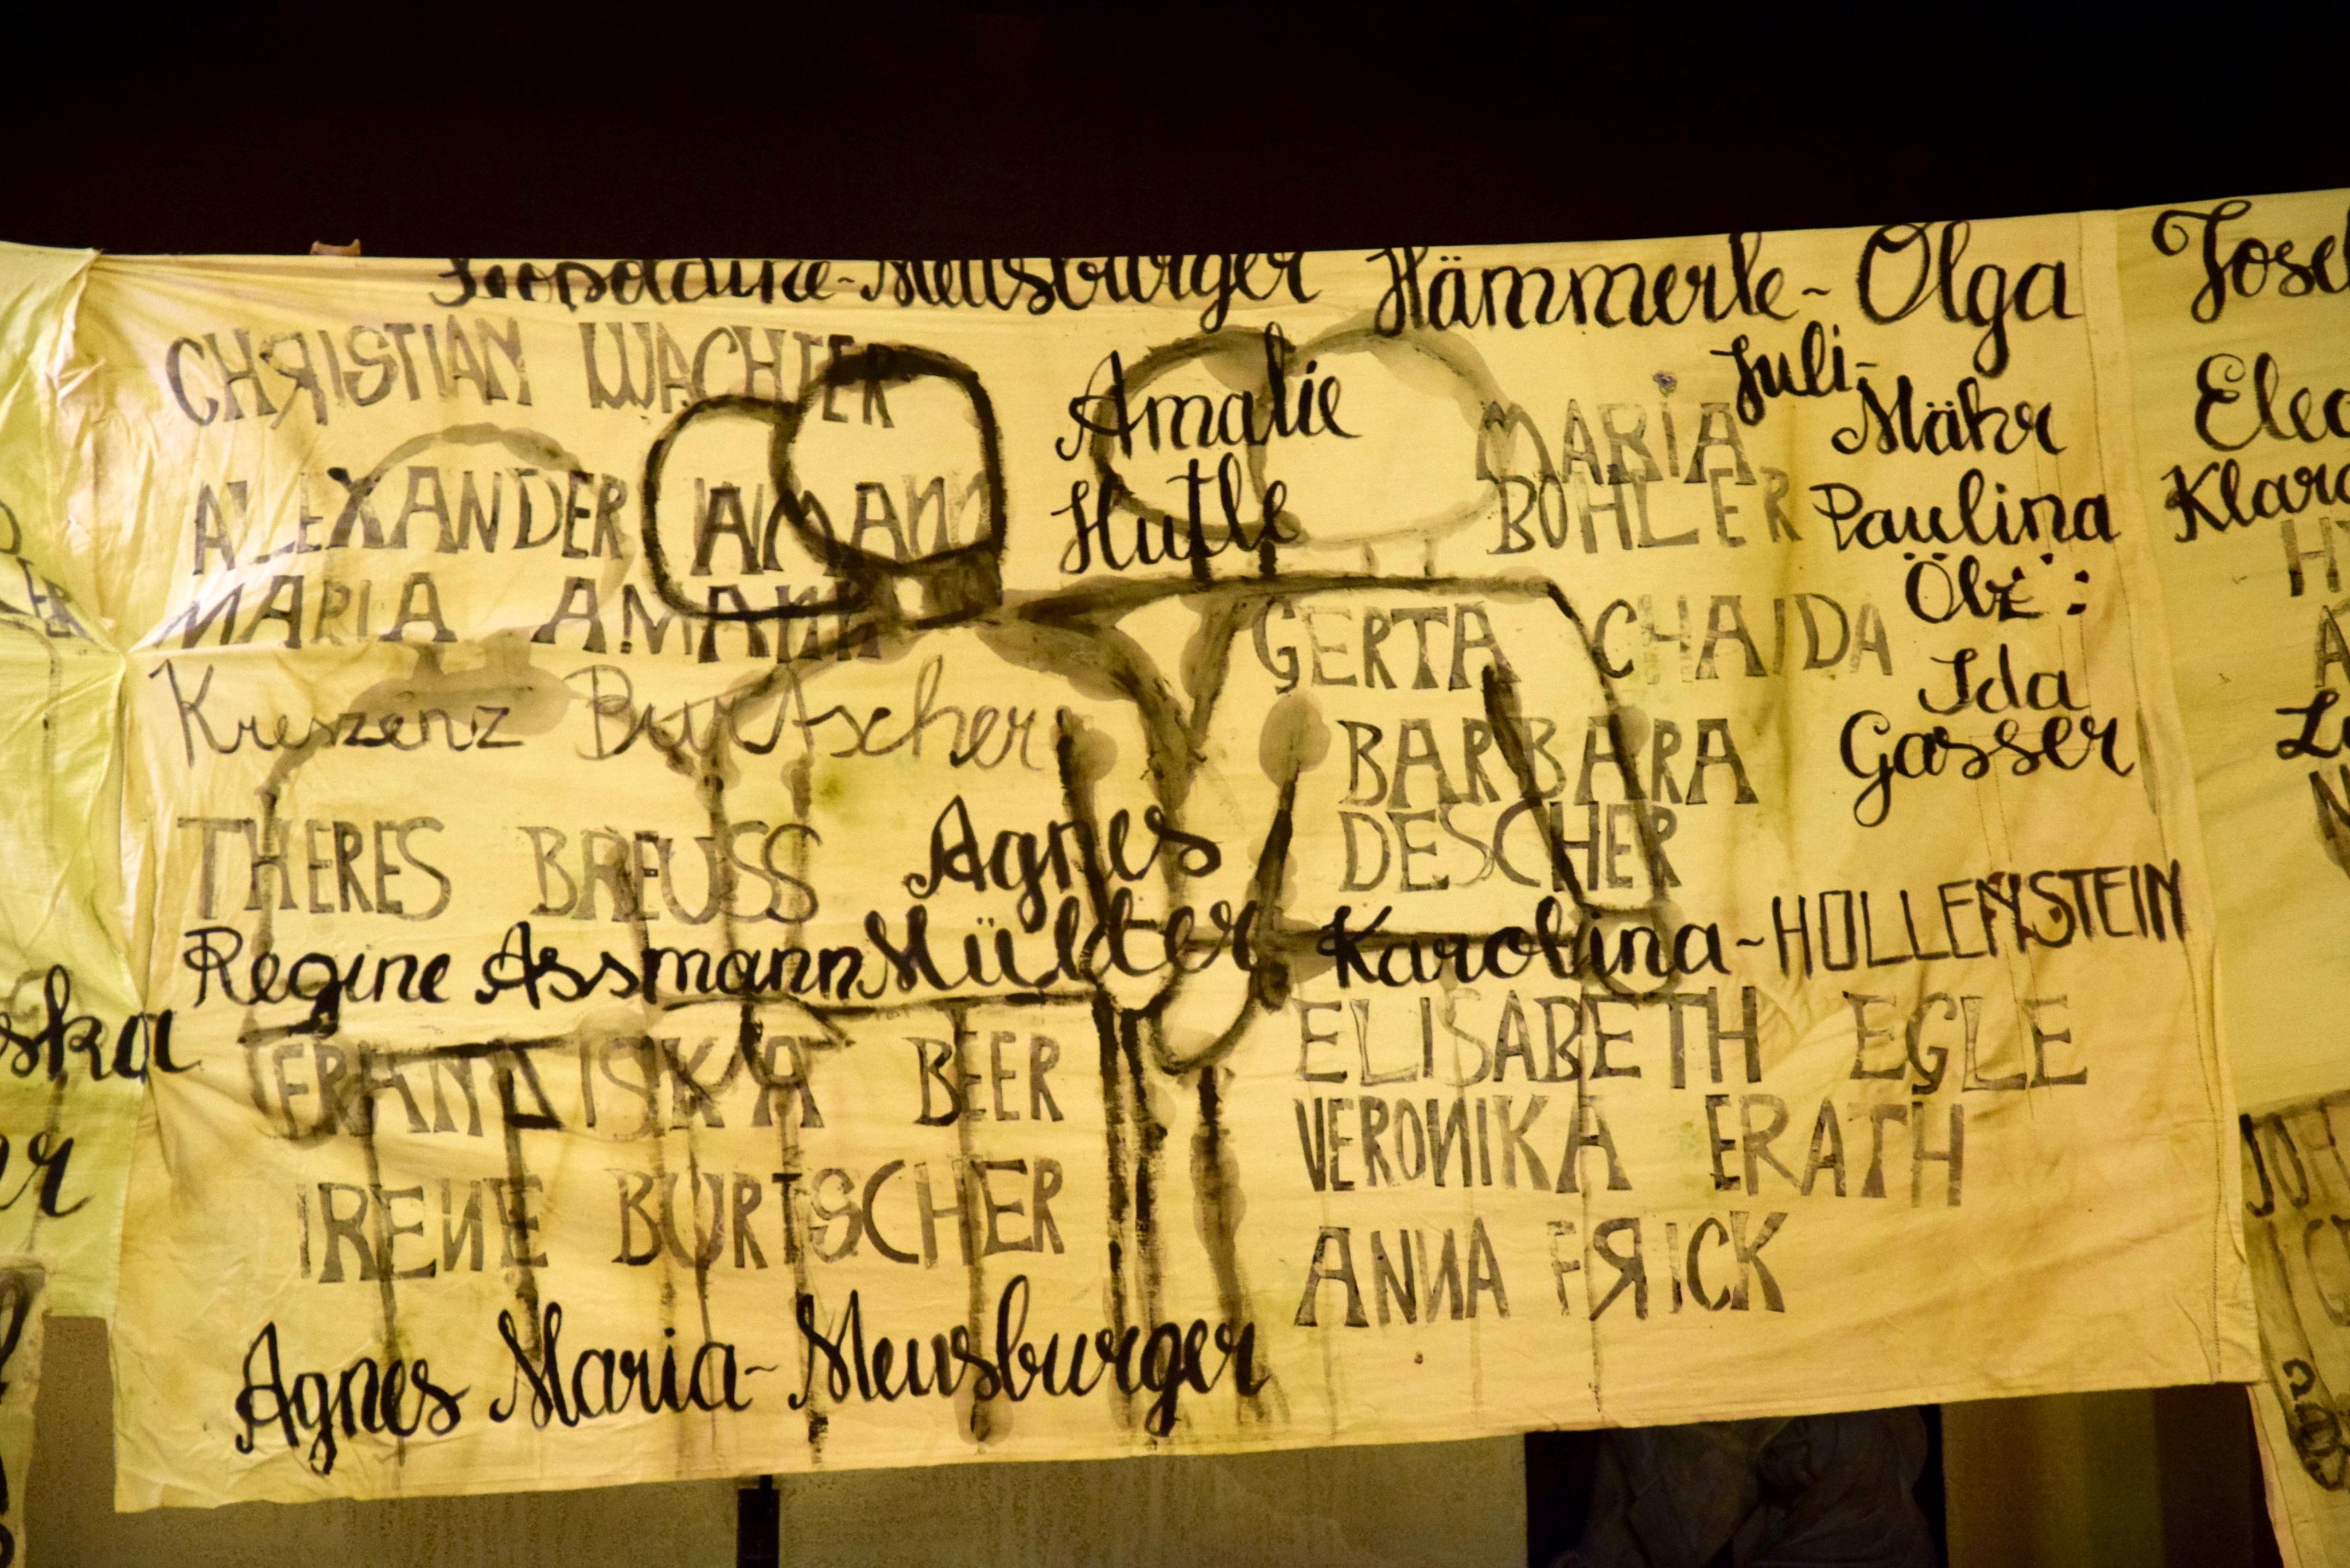 Leopoldine-Meusburger
Hämmerle-Olga
CHRISTIAN WACHTER
ALEXANDER AMANN
MARIA AMANN
Kreszenz Burtscher
THERES BREUSS
Regine Assmann
FRANZISKA BEER
IRENE BURTSCHER
Agnes Maria-Meusburger
Amalie
Hutle
Agnes
Juli-
Mähr
MARIA
BOHLER
Paulina
Ölz
GERTA CHAIDA
Ida
Gasser
BARBARA
DESCHER
Karolina-HOLLENSTEIN
ELISABETH EGLE
VERONIKA ERATH
ANNA FRICK
ska
Klara